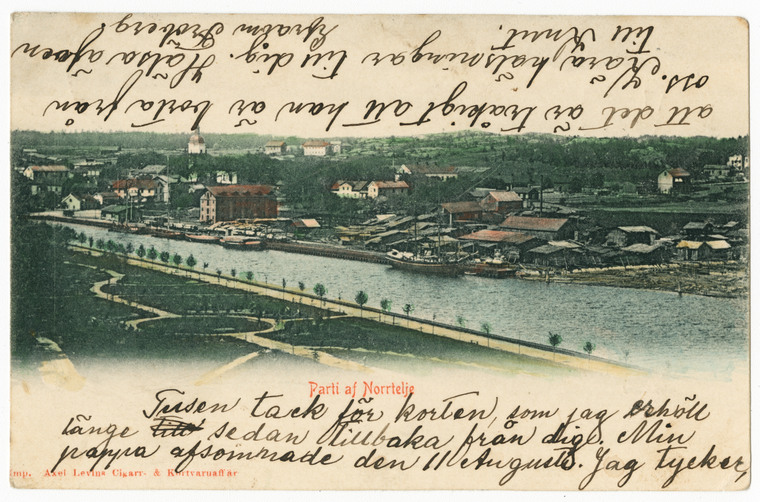 Parti af Norrtelje
Tusen tack för korten, som jag erhöll
länge sedan tillbaka från dig. Min
pappa afsomnade den 11 Augusti. Jag tycker,
Imp. Axel Levins Cigarr- & Kortvaruaffär
att det är tråkigt att han är borta från
oss. Kära hälsningar till dig. Hälsa äfven
till Knut. Efraim Froberg.